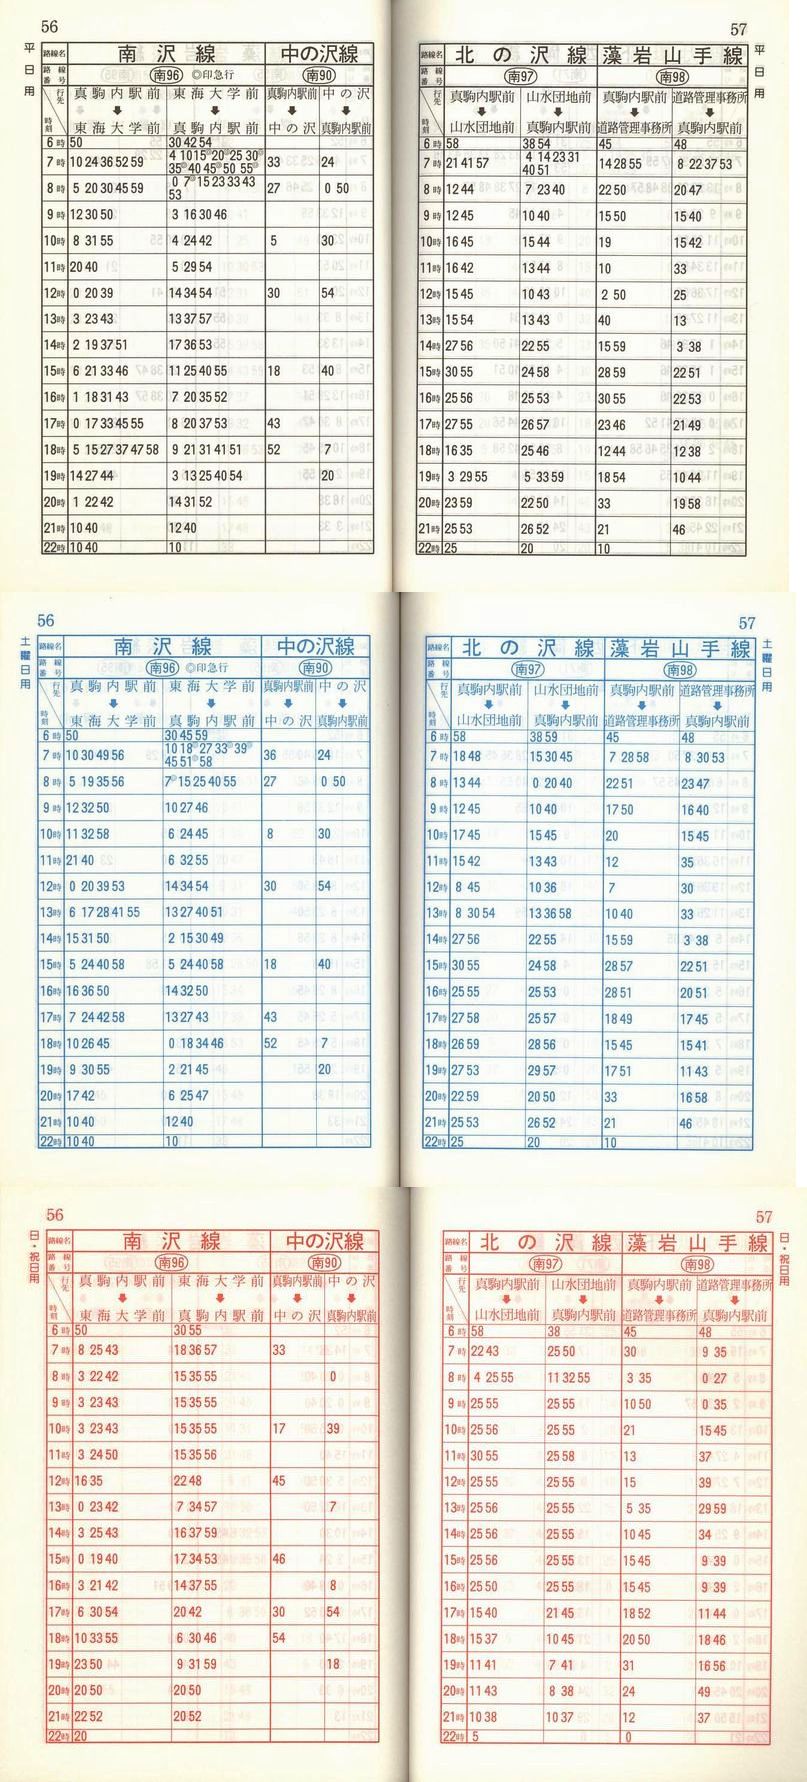 56
平日用
路線名 南沢線 中の沢線
路線番号 南96 ◎印急行 南90
行先 時刻 真駒内駅前 東海大学前 真駒内駅前 中の沢
東海大学前 真駒内駅前 中の沢 真駒内駅前
6時 50 30 42 54
7時 10 24 36 52 59 4 10 15◎ 20◎ 25 30◎ 33 24
35◎ 40 45◎ 50 55◎
8時 5 20 30 45 59 0 7◎ 15 23 33 43 27 0 50
53
9時 12 30 50 3 16 30 46
10時 8 31 55 4 24 42 5 30
11時 20 40 5 29 54
12時 0 20 39 14 34 54 30 54
13時 3 23 43 13 37 57
14時 2 19 37 51 17 36 53
15時 6 21 33 46 11 25 40 55 18 40
16時 1 18 31 43 7 20 35 52
17時 0 17 33 45 55 8 20 37 53 43
18時 5 15 27 37 47 58 9 21 31 41 51 52 7
19時 14 27 44 3 13 25 40 54 20
20時 1 22 42 14 31 52
21時 10 40 12 40
22時 10 40 10
57
平日用
路線名 北の沢線 藻岩山手線
路線番号 南97 南98
行先 時刻 真駒内駅前 山水団地前 真駒内駅前 道路管理事務所
山水団地前 真駒内駅前 道路管理事務所 真駒内駅前
6時 58 38 54 45 48
7時 21 41 57 4 14 23 31 14 28 55 8 22 37 53
40 51
8時 12 44 7 23 40 22 50 20 47
9時 12 45 10 40 15 50 15 40
10時 16 45 15 44 19 15 42
11時 16 42 13 44 10 33
12時 15 45 10 43 2 50 25
13時 15 54 13 43 40 13
14時 27 56 22 55 15 59 3 38
15時 30 55 24 58 28 59 22 51
16時 25 56 25 53 30 55 22 53
17時 27 55 26 57 23 46 21 49
18時 16 35 25 46 12 44 12 38
19時 3 29 55 5 33 59 18 54 10 44
20時 23 59 22 50 33 19 58
21時 25 53 26 52 21 46
22時 25 20 10
56
土曜日用
路線名 南沢線 中の沢線
路線番号 南96 ◎印急行 南90
行先 時刻 真駒内駅前 東海大学前 真駒内駅前 中の沢
東海大学前 真駒内駅前 中の沢 真駒内駅前
6時 50 30 45 59
7時 10 30 49 56 10 18◎ 27 33◎ 39◎ 36 24
45 51◎ 58
8時 5 19 35 56 7◎ 15 25 40 55 27 0 50
9時 12 32 50 10 27 46
10時 11 32 58 6 24 45 8 30
11時 21 40 6 32 55
12時 0 20 39 53 14 34 54 30 54
13時 6 17 28 41 55 13 27 40 51
14時 15 31 50 2 15 30 49
15時 5 24 40 58 5 24 40 58 18 40
16時 16 36 50 14 32 50
17時 7 24 42 58 13 27 43 43
18時 10 26 45 0 18 34 46 52 7
19時 9 30 55 2 21 45 20
20時 17 42 6 25 47
21時 10 40 12 40
22時 10 40 10
57
土曜日用
路線名 北の沢線 藻岩山手線
路線番号 南97 南98
行先 時刻 真駒内駅前 山水団地前 真駒内駅前 道路管理事務所
山水団地前 真駒内駅前 道路管理事務所 真駒内駅前
6時 58 38 59 45 48
7時 18 48 15 30 45 7 28 58 8 30 53
8時 13 44 0 20 40 22 51 23 47
9時 12 45 10 40 17 50 16 40
10時 17 45 15 45 20 15 45
11時 15 42 13 43 12 35
12時 8 45 10 36 7 30
13時 8 30 54 13 36 58 10 40 33
14時 27 56 22 55 15 59 3 38
15時 30 55 24 58 28 57 22 51
16時 25 55 25 53 28 51 20 51
17時 27 58 25 57 18 49 17 45
18時 26 59 28 56 15 45 15 41
19時 27 53 29 57 17 51 11 43
20時 22 59 20 50 33 16 58
21時 25 53 26 52 21 46
22時 25 20 10
56
日・祝日用
路線名 南沢線 中の沢線
路線番号 南96 南90
行先 時刻 真駒内駅前 東海大学前 真駒内駅前 中の沢
東海大学前 真駒内駅前 中の沢 真駒内駅前
6時 50 30 55
7時 8 25 43 18 36 57 33
8時 3 22 42 15 35 55 0
9時 3 23 43 15 35 55
10時 3 23 43 15 35 55 17 39
11時 3 24 50 15 35 56
12時 16 35 22 48 45
13時 0 23 42 7 34 57 7
14時 3 25 43 16 37 59
15時 0 19 40 17 34 53 46
16時 3 21 42 14 37 55 8
17時 6 30 54 20 42 30 54
18時 10 33 55 6 30 46 54
19時 23 50 9 31 59 18
20時 20 50 20 50
21時 22 52 20 52
22時 20
57
日・祝日用
路線名 北の沢線 藻岩山手線
路線番号 南97 南98
行先 時刻 真駒内駅前 山水団地前 真駒内駅前 道路管理事務所
山水団地前 真駒内駅前 道路管理事務所 真駒内駅前
6時 58 38 45 48
7時 22 43 25 50 30 9 35
8時 4 25 55 11 32 55 3 35 0 27
9時 25 55 25 55 10 50 0 35
10時 25 56 25 55 21 15 45
11時 30 55 25 58 13 37
12時 25 55 25 55 15 39
13時 25 56 25 55 5 35 29 59
14時 25 56 25 55 10 45 34
15時 25 56 25 55 15 45 9 39
16時 25 50 25 55 15 45 9 39
17時 15 40 21 45 18 52 11 44
18時 15 37 10 45 20 50 18 46
19時 11 41 7 41 31 16 56
20時 11 43 8 38 24 49
21時 10 38 10 37 12 37
22時 5 0